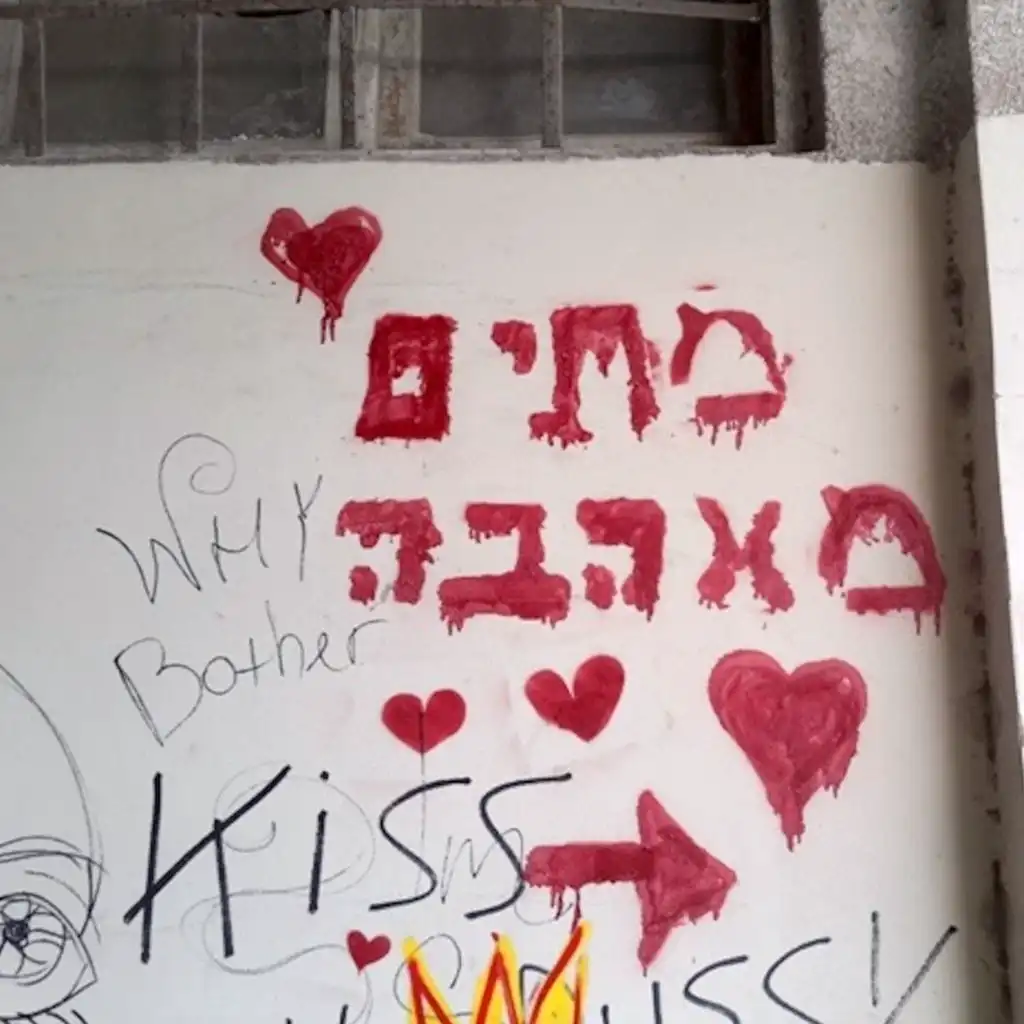 מתים
מאהבה
WHY
Bother
Kiss